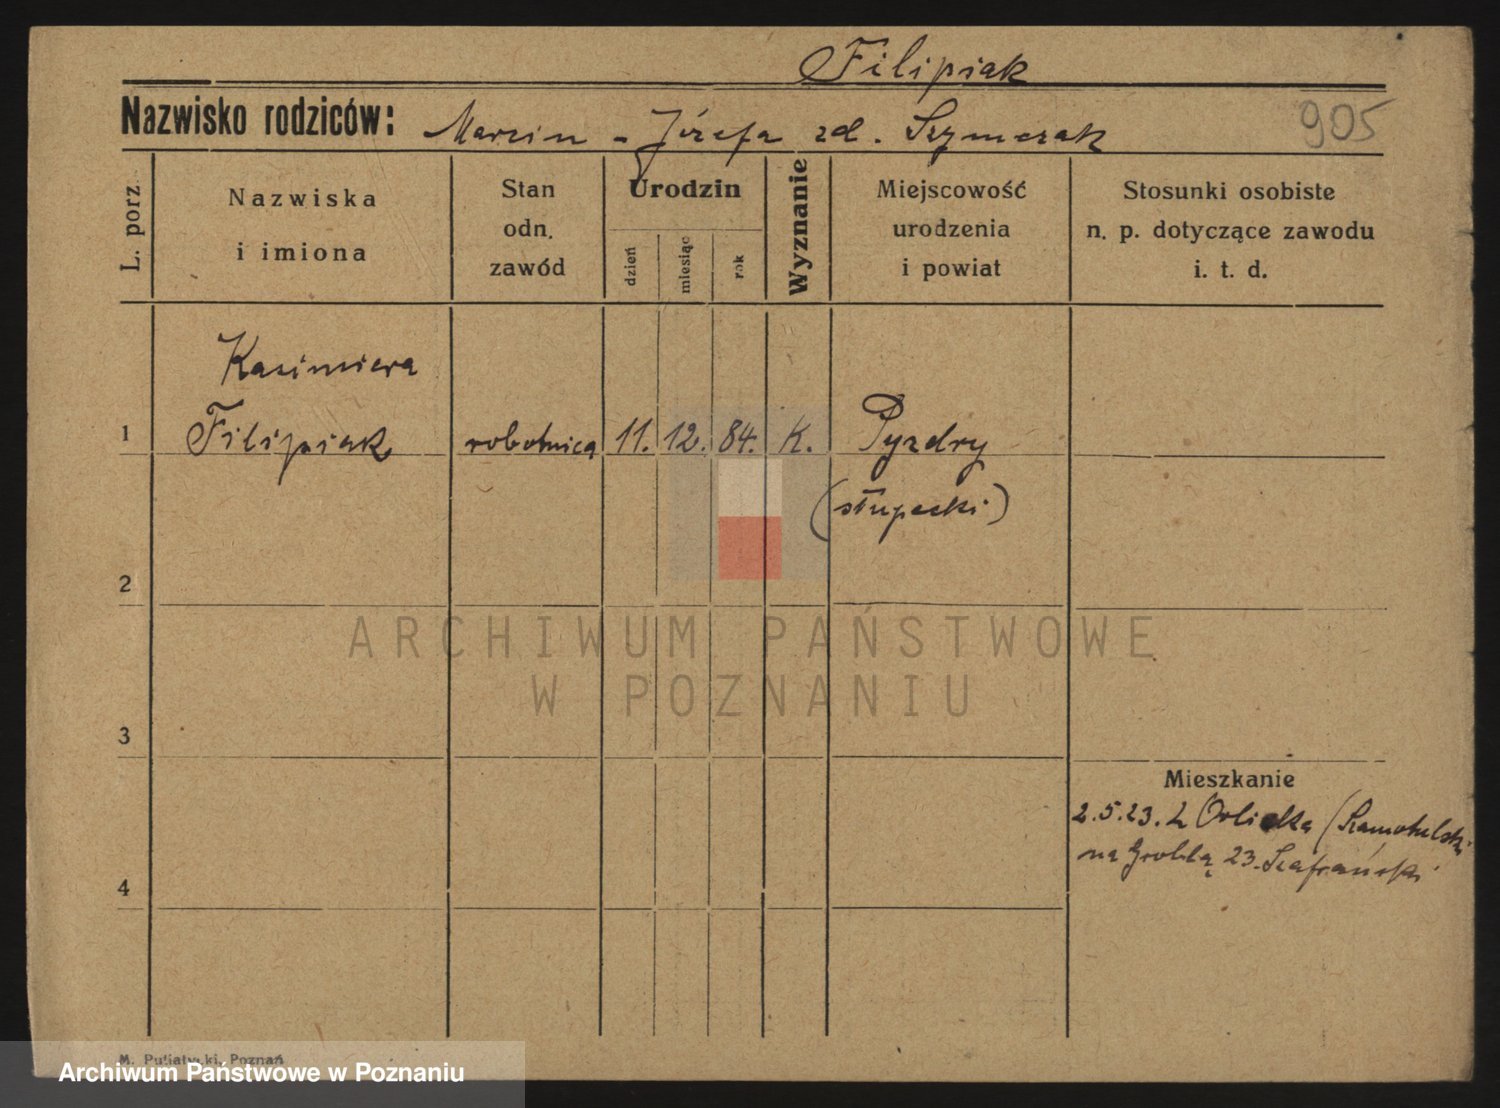 Filipiak
Nazwisko rodziców: Marcin - Józefa zd. Szymczak
905
L. porz.
Nazwiska
i imiona
Stan
odn.
zawód
Urodzin
dzień
miesiąc
rok
Wyznanie
Miejscowość
urodzenia
i powiat
Stosunki osobiste
n. p. dotyczące zawodu
i. t. d.
Kazimiera
1 Filipiak robotnica 11. 12. 84. K. Pyzdry
(słupecki)
2
ARCHIWUM PAŃSTWOWE
W POZNANIU
3
Mieszkanie
2.5.23. z (Szamotulski
na Groblą 23. Szafrański
4
M. Poznań
Archiwum Państwowe w Poznaniu